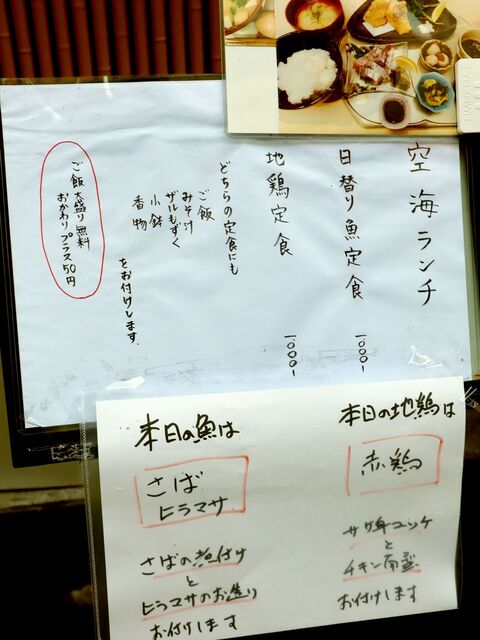 空海ランチ
日替り魚定食 一〇〇〇-
地鶏定食 一〇〇〇-
どちらの定食にも
ご飯
みそ汁
ザルもずく
小鉢
香物
をお付けします
ご飯大盛り無料
おかわりプラス50円
本日の地鶏は
赤鶏
ササ身ユッケ
と
チキン南蛮
お付けします
本日の魚は
さば
ヒラマサ
さばの煮付け
と
ヒラマサのお造り
お付けします